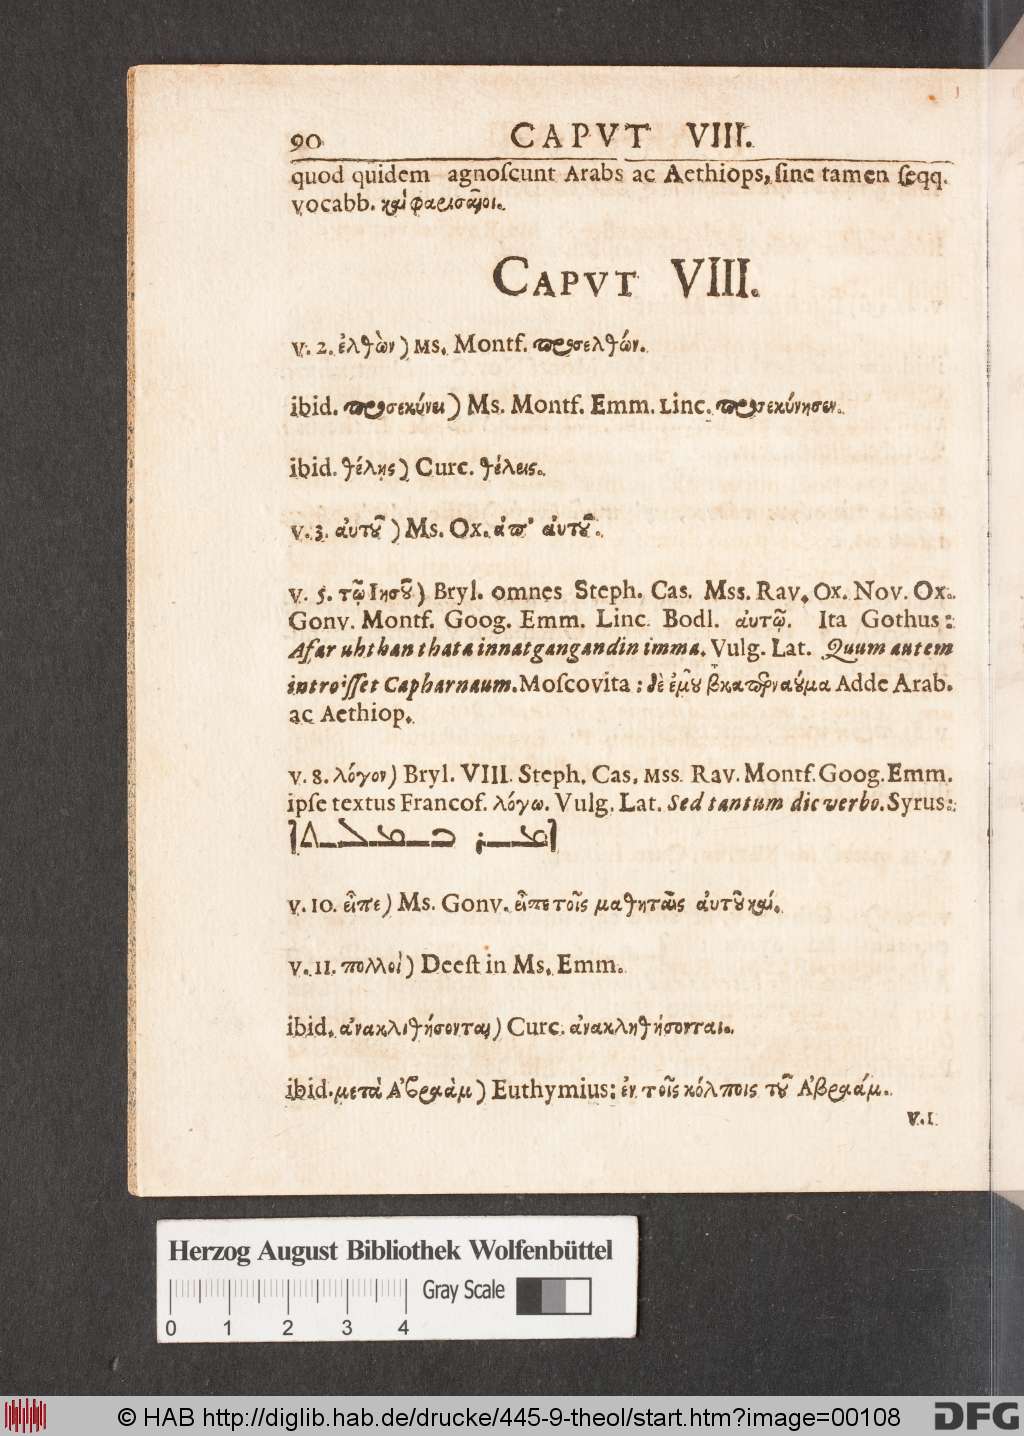 90 CAPVT VIII.
quod quidem agnoſcunt Arabs ac Aethiops, ſine tamen ſeqq.
vocabb. καὶ φαρισαῖοι.
CAPVT VIII.
v. 2. ἐλθὼν) Ms. Montf. προσελθών.
ibid. προσεκύνει) Ms. Montf. Emm. Linc. προσεκύνησεν.
ibid. θέλῃς) Curc. θέλεις.
v. 3. αὐτοῦ) Ms. Ox. ἀπ' αὐτοῦ.
v. 5. τῷ Ἰησοῦ) Bryl. omnes Steph. Cas. Mss. Rav. Ox. Nov. Ox.
Gonv. Montf. Goog. Emm. Linc. Bodl. αὐτῷ. Ita Gothus:
Afar uhthan thata innatgangandin imma. Vulg. Lat. Quum autem
introiſſet Capharnaum. Moſcovita: Adde Arab.
ac Aethiop.
v. 8. λόγον) Bryl. VIII. Steph. Cas. Mss. Rav. Montf. Goog. Emm.
ipſe textus Francof. λόγω. Vulg. Lat. Sed tantum dic verbo. Syrus:
v. 10. εἶπε) Ms. Gonv. εἶπε τοῖς μαθηταῖς αὐτοῦ καί.
v. 11. πολλοὶ) Deeſt in Ms. Emm.
ibid. ἀνακλιθήσονται) Curc. ἀνακληθήσονται.
ibid. μετὰ Ἀβραὰμ) Euthymius: ἐν τοῖς κόλποις τοῦ Ἀβραάμ.
v. 1
Herzog August Bibliothek Wolfenbüttel
Gray Scale
0 1 2 3 4
© HAB http://diglib.hab.de/drucke/445-9-theol/start.htm?image=00108 DFG